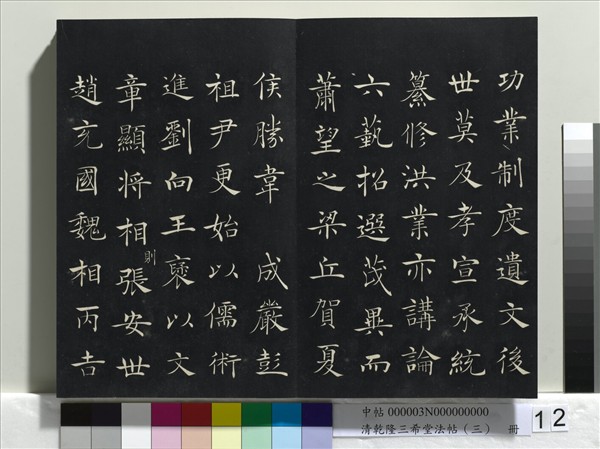 功業制度遺文後
世莫及孝宣承統
纂修洪業亦講論
六藝招選茂異而
蕭望之梁丘賀夏
侯勝韋 成嚴彭
祖尹更始以儒術
進劉向王褒以文
章顯將相則張安世
趙充國魏相丙吉
中帖 000003N000000000
清乾隆三希堂法帖（三） 冊
12